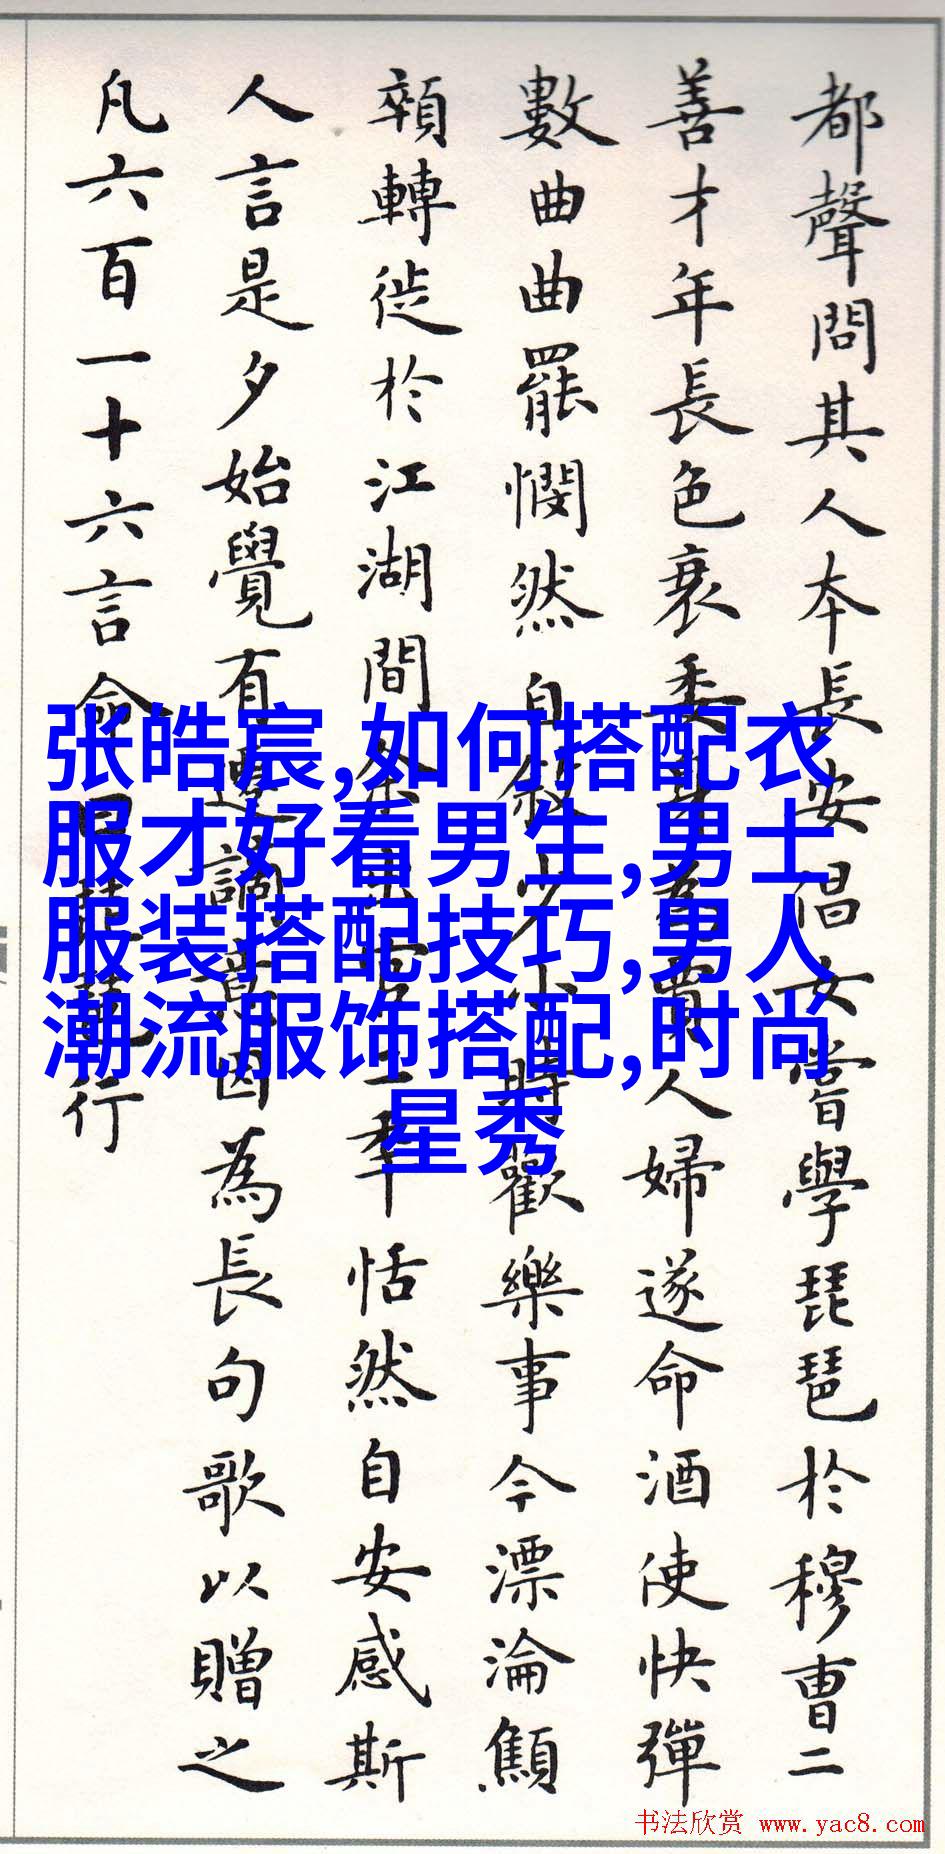 都聲問其人本長安倡女嘗學琵琶於穆曹二
善才年長色衰委身為賈人婦遂命酒使快彈
數曲曲罷憫然自敘少小時歡樂事今漂淪顦
顇轉徙於江湖間余出官二年恬然自安感斯
人言是夕始覺有遷謫意因為長句歌以贈之
凡六百一十六言命曰琵琶行
张皓宸,如何搭配衣
服才好看男生,男士
服装搭配技巧,男人
潮流服饰搭配,时尚
星秀
书法欣赏 www.yac8.com